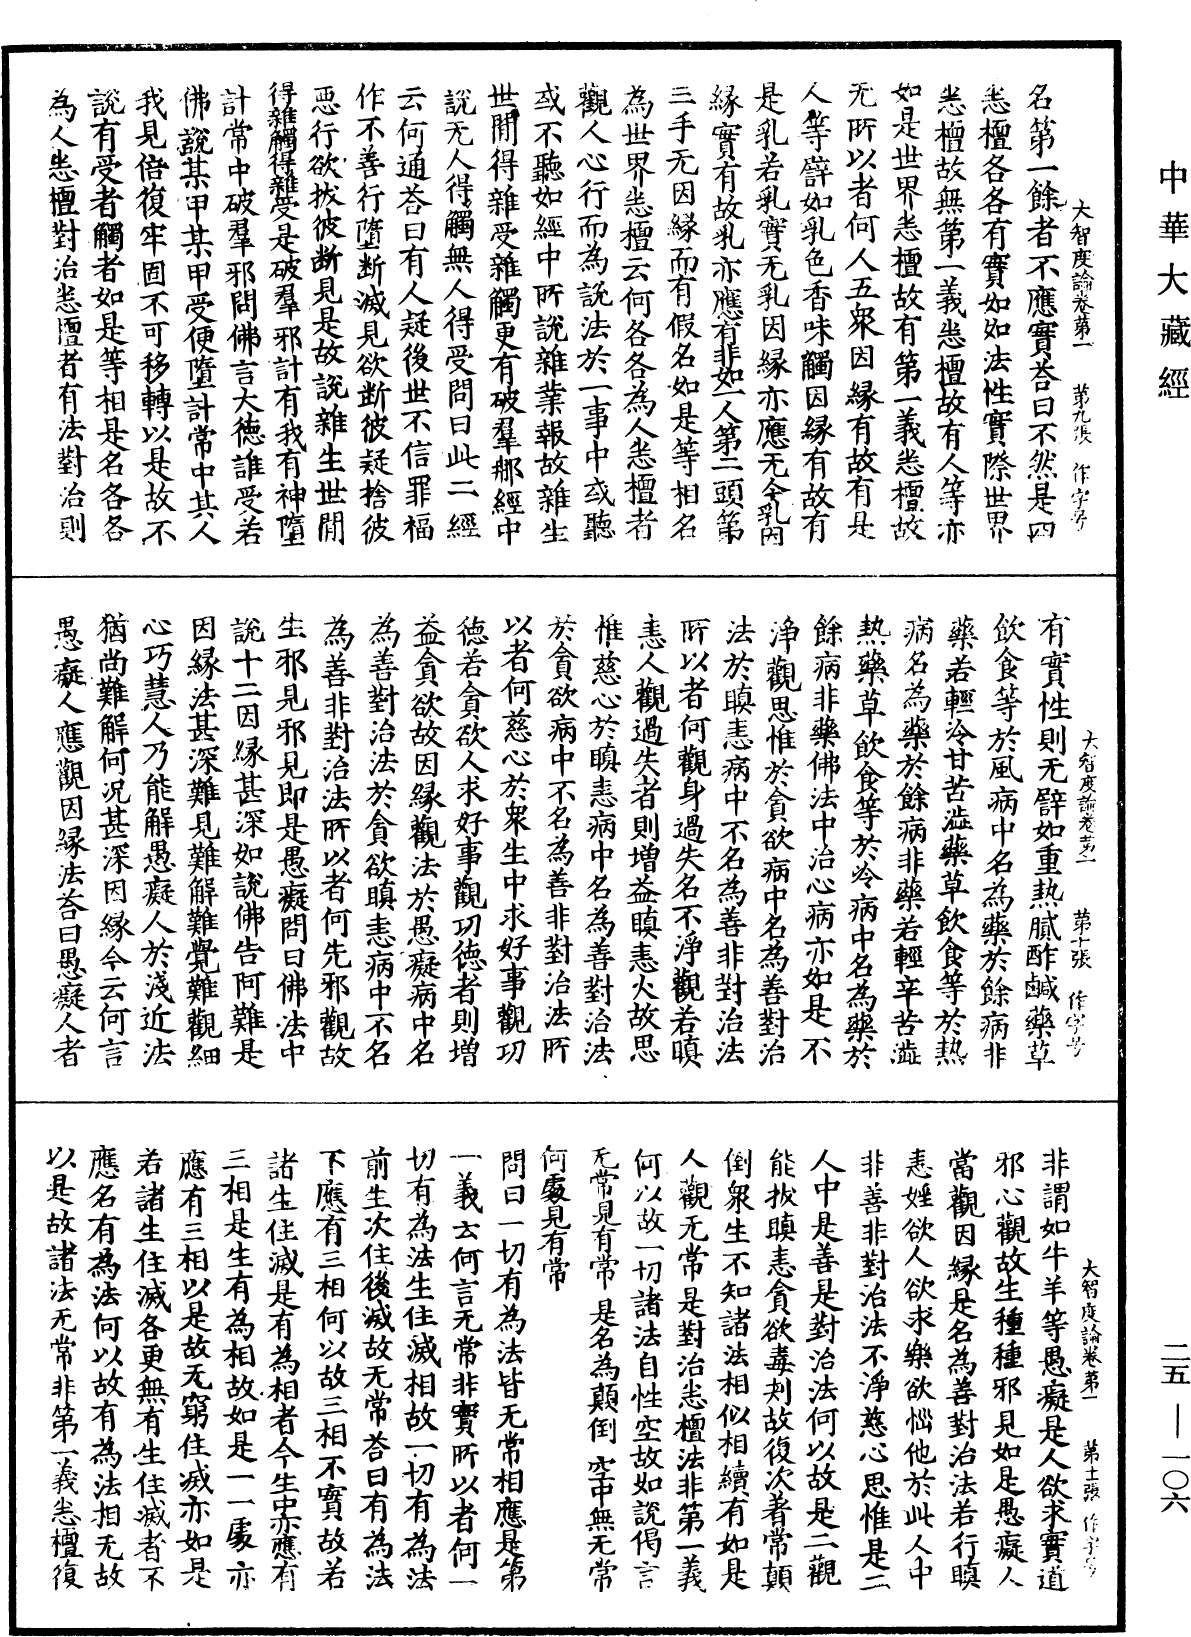 中華大藏經
大智度論卷第一　第九張　作字号
名第一餘者不應實荅曰不然是四
悉檀各各有實如如法性實際世界
悉檀故無第一義悉檀故有人等亦
如是世界悉檀故有第一義悉檀故
无所以者何人五衆因緣有故有是
人等譬如乳色香味觸因緣有故有
是乳若乳實无乳因緣亦應无今乳因
緣實有故乳亦應有非如一人第二頭第
三手无因緣而有假名如是等相名
為世界悉檀云何各各為人悉檀者
觀人心行而為說法於一事中或聽
或不聽如經中所說雜業報故雜生
世間得雜受雜觸更有破羣那經中
說无人得觸無人得受問曰此二經
云何通荅曰有人疑後世不信罪福
作不善行墮斷滅見欲斷彼疑捨彼
惡行欲拔彼斷見是故說雜生世間
得雜觸得雜受是破羣邪計有我有神墮
計常中破羣邪問佛言大德誰受若
佛說某甲某甲受便墮計常中其人
我見倍復牢固不可移轉以是故不
說有受者觸者如是等相是名各各
為人悉檀對治悉檀者有法對治則
大智度論卷第一　第十張　作字号
有實性則无譬如重熱膩酢鹹藥草
飲食等於風病中名為藥於餘病非
藥若輕冷甘苦澁藥草飲食等於熱
病名為藥於餘病非藥若輕辛苦澁
熱藥草飲食等於冷病中名為藥於
餘病非藥佛法中治心病亦如是不
淨觀思惟於貪欲病中名為善對治
法於瞋恚病中不名為善非對治法
所以者何觀身過失名不淨觀若瞋
恚人觀過失者則增益瞋恚火故思
惟慈心於瞋恚病中名為善對治法
於貪欲病中不名為善非對治法所
以者何慈心於衆生中求好事觀功
德若貪欲人求好事觀功德者則增
益貪欲故因緣觀法於愚癡病中名
為善對治法於貪欲瞋恚病中不名
為善非對治法所以者何先邪觀故
生邪見邪見即是愚癡問曰佛法中
說十二因緣甚深如說佛告阿難是
因緣法甚深難見難解難覺難觀細
心巧慧人乃能解愚癡人於淺近法
猶尚難解何況甚深因緣今云何言
愚癡人應觀因緣法荅曰愚癡人者
大智度論卷第一　第十一張　作字号
非謂如牛羊等愚癡是人欲求實道
邪心觀故生種種邪見如是愚癡人
當觀因緣是名為善對治法若行瞋
恚婬欲人欲求樂欲惱他於此人中
非善非對治法不淨慈心思惟是二
人中是善是對治法何以故是二觀
能拔瞋恚貪欲毒刺故復次著常顛
倒衆生不知諸法相似相續有如是
人觀无常是對治悉檀法非第一義
何以故一切諸法自性空故如說偈言
无常見有常　是名為顛倒　空中無无常
何處見有常
問曰一切有為法皆无常相應是第
一義云何言无常非實所以者何一
切有為法生住滅相故一切有為法
前生次住後滅故无常荅曰有為法
不應有三相何以故三相不實故若
諸生住滅是有為相者今生中亦應有
三相是生有為相故如是一一處亦
應有三相以是故无窮住滅亦如是
若諸生住滅各更無有生住滅者不
應名有為法何以故有為法相无故
以是故諸法无常非第一義悉檀復
二五—一〇六